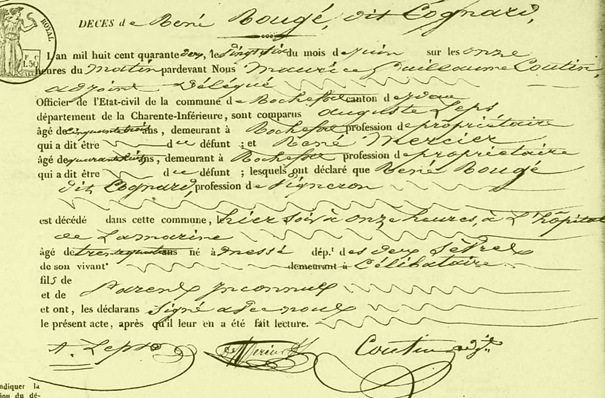 ROYAL
1.50
DÉCÈS de René Rougé, dit Cognard,
L'an mil huit cent quarante deux, le vingt six du mois de juin sur les onze
heures du Matin pardevant Nous Maurice Guillaume Coutin,
adjoint délégué
Officier de l'Etat-civil de la commune de Rochefort canton de idem
département de la Charente-Inférieure, sont comparus auguste Leps
âgé de cinquante ans, demeurant à Rochefort profession de propriétaire
qui a dit être du défunt ; et René Mercier
âgé de quarante ans, demeurant à Rochefort profession de propriétaire
qui a dit être du défunt ; lesquels ont déclaré que René Rougé
dit Cognard, profession de Vigneron
est décédé dans cette commune, hier soir à onze heures, à l'hôpital
de Lamarine
âgé de né à Messé dép.t des deux Sevres
de son vivant demeurant à Célibataire
fils de
et de Parens Inconnus
et ont, les déclarans Signé avec nous
le présent acte, après qu'il leur en a été fait lecture.
A. Leps Mercier Coutin
indiquer la
ion du dé-